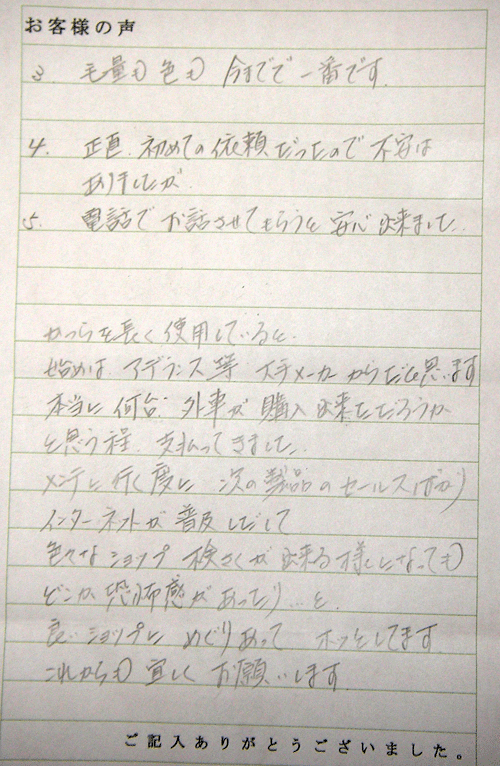 お客様の声
3. 毛量も色も 今までで一番です
4. 正直、初めての依頼だったので不安は
ありましたが、
5. 電話でお話させてもらうと安心出来ました。
かつらを長く使用していると、
始めは アデランス等 大手メーカーからだと思います
本当に何台、外車が購入出来ただろうか
と思う程、支払ってきました。
メンテに行く度に 次の製品のセールスばかり
インターネットが普及しだして
色々なショップ 検さくが出来る様になっても
どこか恐怖感があったり…と、
良いショップに めぐりあって ホッとしてます
これからも 宜しく お願いします
ご記入ありがとうございました。